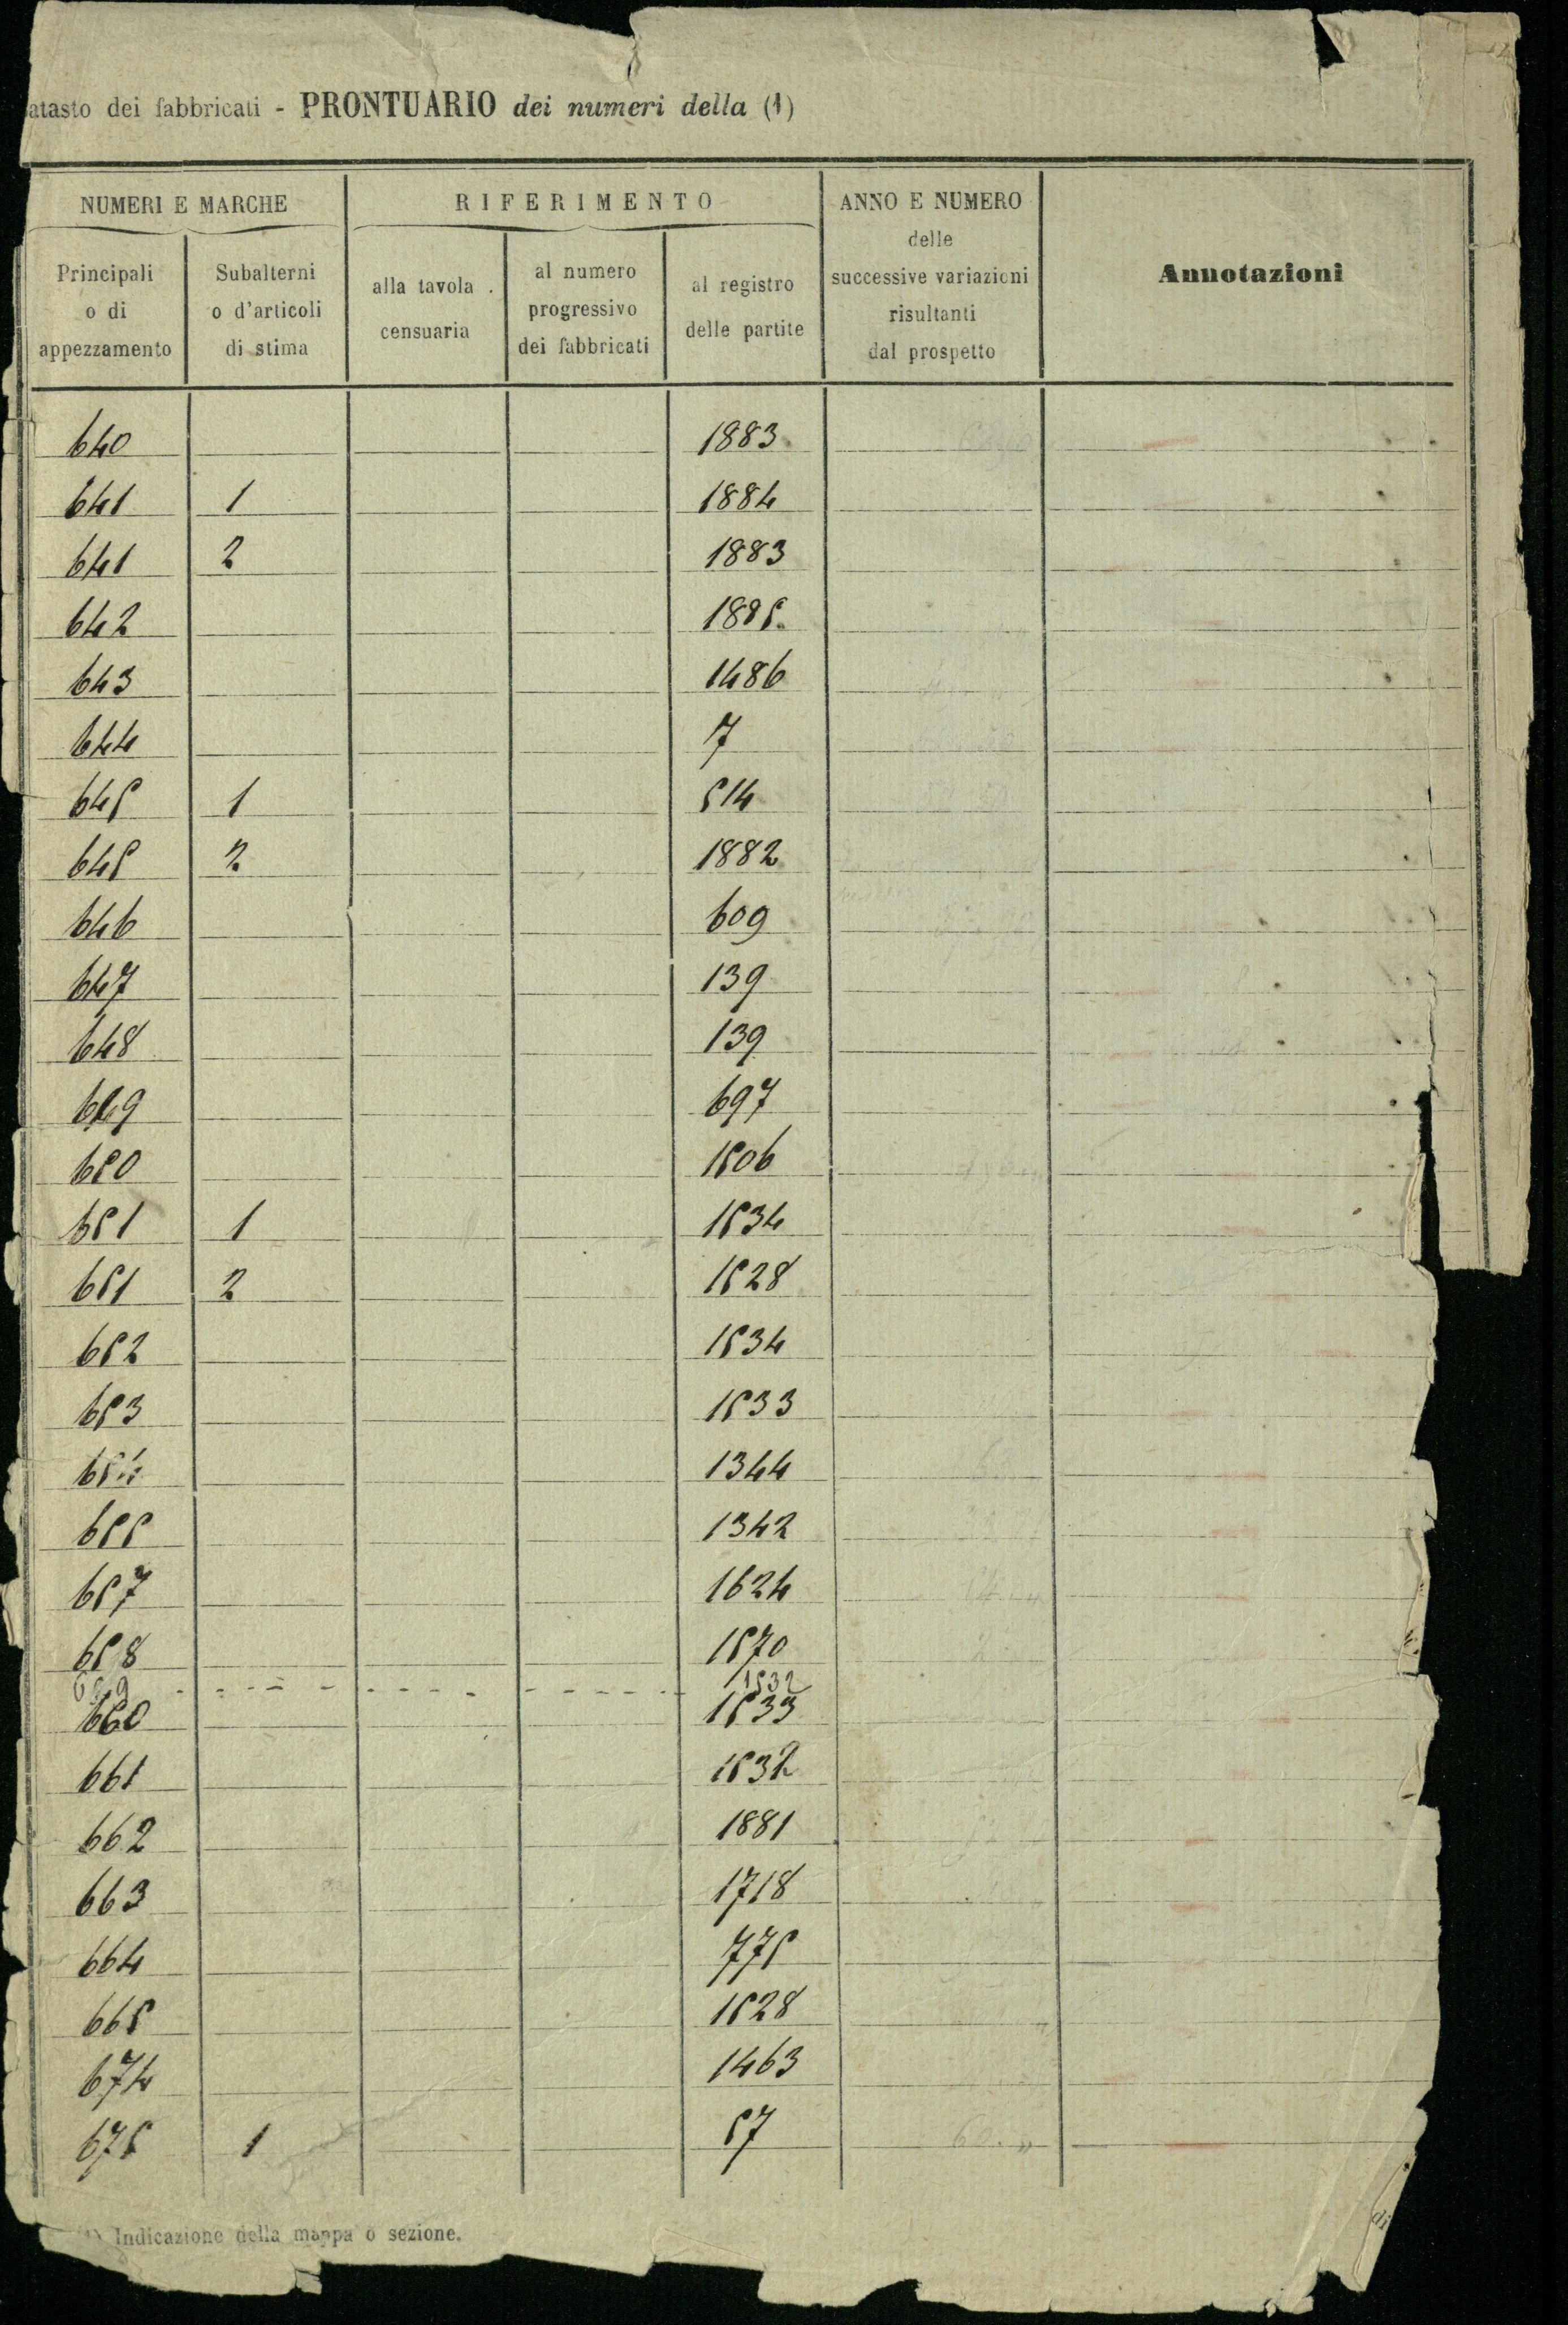 atasto dei fabbricati - PRONTUARIO dei numeri della (1)
NUMERI E MARCHE
RIFERIMENTO
ANNO E NUMERO
delle
successive variazioni
risultanti
dal prospetto
Annotazioni
Principali
o di
appezzamento
Subalterni
o d'articoli
di stima
alla tavola
censuaria
al numero
progressivo
dei fabbricati
al registro
delle partite
640 1883
641 1 1884
641 2 1883
642 1885
643 1486
644 7
645 1 514
645 2 1882
646 609
647 139
648 139
649 697
650 1506
651 1 1534
651 2 1528
652 1534
653 1533
654 1344
655 1342
657 1624
658 1570
659 - - - - - - - - - - - 1532
660 1533
661 1532
662 1881
663 1718
664 775
665 1528
674 1463
675 1 57
(1) Indicazione della mappa o sezione.
di